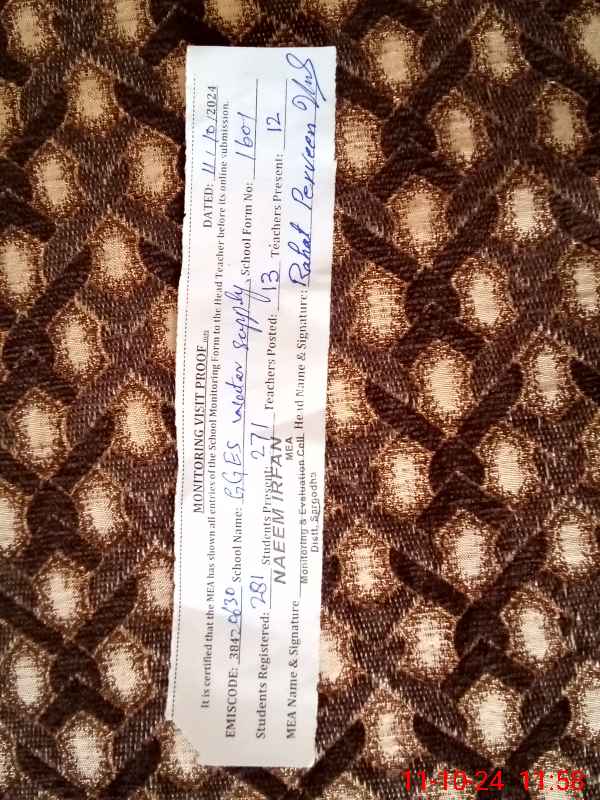 MONITORING VISIT PROOF
DATED: 11/10/2024
It is certified that the MEA has shown all entries of the School Monitoring Form to the Head Teacher before its online submission.
EMISCODE: 38420630 School Name: GGES water supply School Form No: 1601
Students Registered: 281 Students Present: 271 Teachers Posted: 13 Teachers Present: 12
NAEEM IRFAN
MEA
MEA Name & Signature Head Name & Signature: Rahat Perveen
Monitoring & Evaluation Cell
Distt. Sargodha
11-10-24 11:58